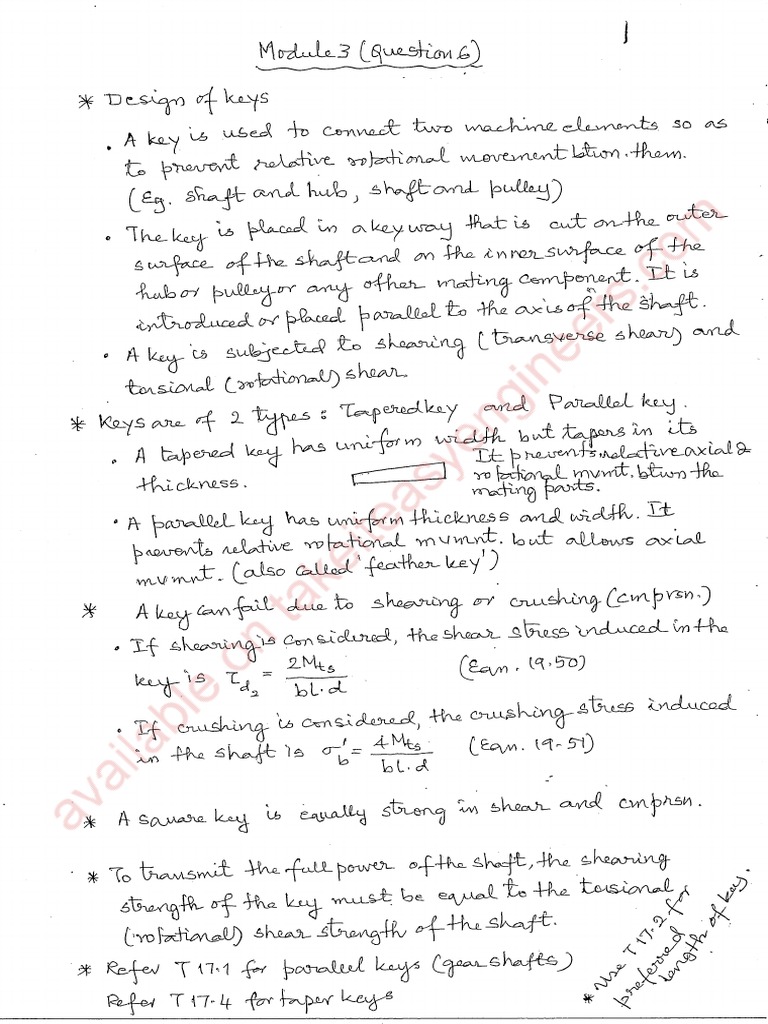 1
Module 3 (Question 6)
* Design of keys
. A key is used to connect two machine elements so as
to prevent relative rotational movement btwn. them.
(Eg. shaft and hub, shaft and pulley)
. The key is placed in a keyway that is cut on the outer
surface of the shaft and on the inner surface of the
hub or pulley or any other mating component. It is
introduced or placed parallel to the axis of the shaft.
. A key is subjected to shearing (transverse shear) and
torsional (rotational) shear.
* Keys are of 2 types : Tapered key and Parallel key.
. A tapered key has uniform width but tapers in its
thickness.
It prevents relative axial &
rotational mvmt. btwn the
mating parts.
. A parallel key has uniform thickness and width. It
prevents relative rotational mvmnt. but allows axial
mvmnt. (also called 'feather key')
* A key can fail due to shearing or crushing (cmprsn.)
. If shearing is considered, the shear stress induced in the
key is τd2 = 2Mts / bl.d (Eqn. 19.50)
. If crushing is considered, the crushing stress induced
in the shaft is σ'b = 4Mts / bl.d (Eqn. 19-51)
* A square key is equally strong in shear and cmprsn.
* To transmit the full power of the shaft, the shearing
strength of the key must be equal to the torsional
(rotational) shear strength of the shaft.
* Refer T 17.1 for parallel keys (gear shafts)
Refer T 17.4 for taper keys
* Use T 17.2 for
preferred
length of key.
available on takeiteasyengineers.com